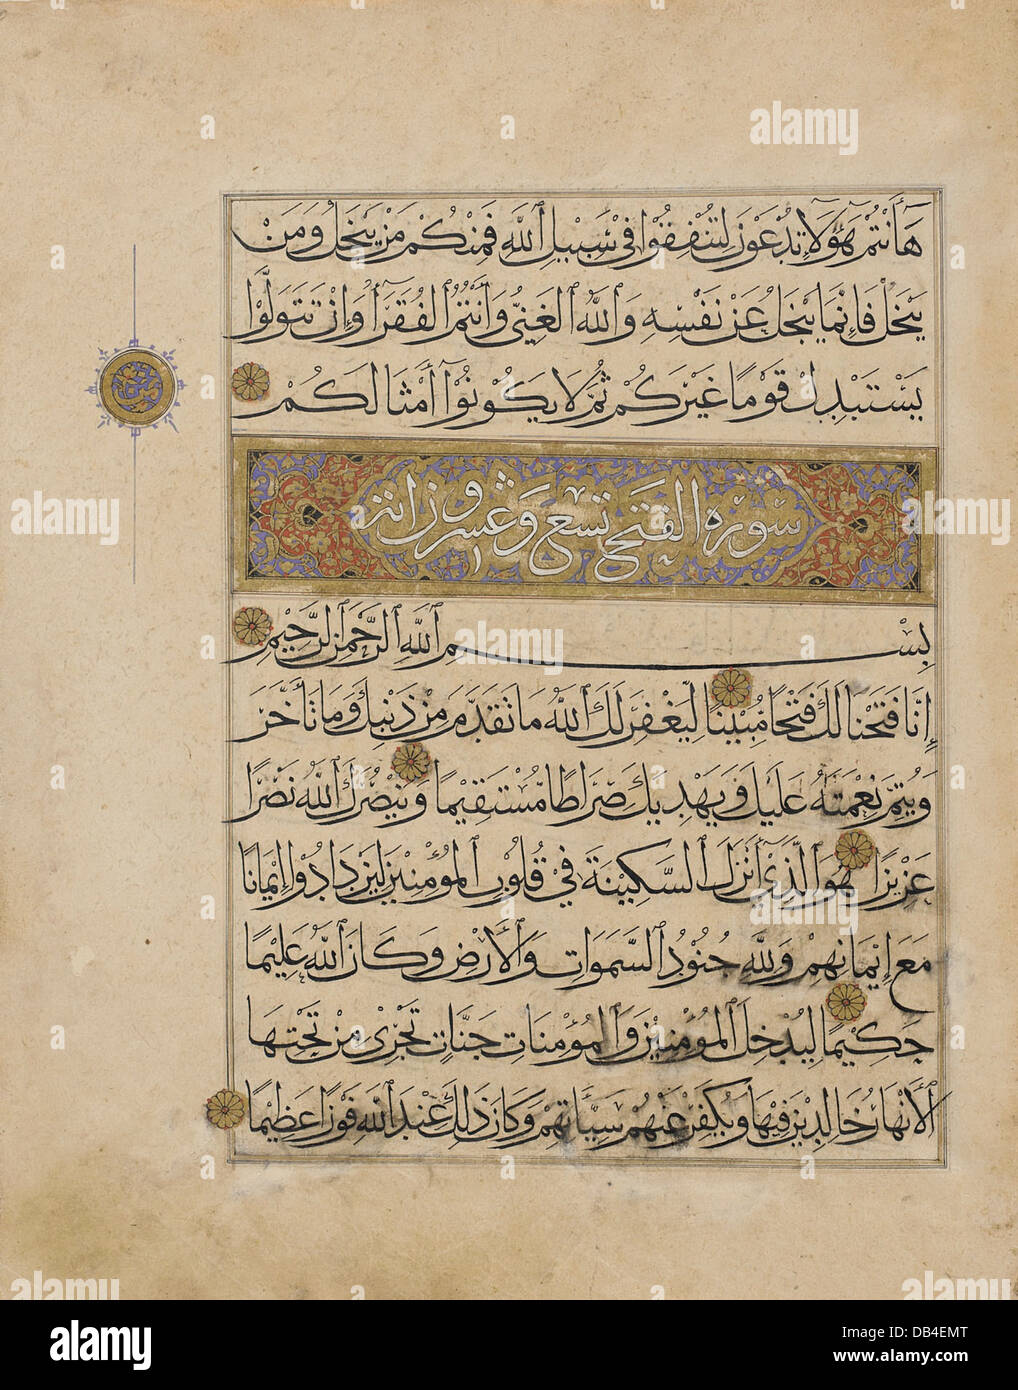 هَا أَنْتُمْ هَؤُلَاءِ تُدْعَوْنَ لِتُنْفِقُوا فِي سَبِيلِ ٱللَّهِ فَمِنْكُمْ مَنْ يَبْخَلُ وَمَنْ
يَبْخَلْ فَإِنَّمَا يَبْخَلُ عَنْ نَفْسِهِ وَٱللَّهُ ٱلْغَنِيُّ وَأَنْتُمُ ٱلْفُقَرَآءُ وَإِنْ تَتَوَلَّوْا
يَسْتَبْدِلْ قَوْمًا غَيْرَكُمْ ثُمَّ لَا يَكُونُوا أَمْثَالَكُمْ
سورة الفتح تسع وعشرون آية
بِسْمِ ٱللَّهِ ٱلرَّحْمَنِ ٱلرَّحِيمِ
إِنَّا فَتَحْنَا لَكَ فَتْحًا مُبِينًا لِيَغْفِرَ لَكَ ٱللَّهُ مَا تَقَدَّمَ مِنْ ذَنْبِكَ وَمَا تَأَخَّرَ
وَيُتِمَّ نِعْمَتَهُ عَلَيْكَ وَيَهْدِيَكَ صِرَاطًا مُسْتَقِيمًا وَيَنْصُرَكَ ٱللَّهُ نَصْرًا
عَزِيزًا هُوَ ٱلَّذِي أَنْزَلَ ٱلسَّكِينَةَ فِي قُلُوبِ ٱلْمُؤْمِنِينَ لِيَزْدَادُوا إِيمَانًا
مَعَ إِيمَانِهِمْ وَلِلَّهِ جُنُودُ ٱلسَّمَوَاتِ وَٱلْأَرْضِ وَكَانَ ٱللَّهُ عَلِيمًا
حَكِيمًا لِيُدْخِلَ ٱلْمُؤْمِنِينَ وَٱلْمُؤْمِنَاتِ جَنَّاتٍ تَجْرِي مِنْ تَحْتِهَا
ٱلْأَنْهَارُ خَالِدِينَ فِيهَا وَيُكَفِّرَ عَنْهُمْ سَيِّئَاتِهِمْ وَكَانَ ذَلِكَ عِنْدَ ٱللَّهِ فَوْزًا عَظِيمًا
alamy
a
alamy
Image ID: DB4EMT
www.alamy.com